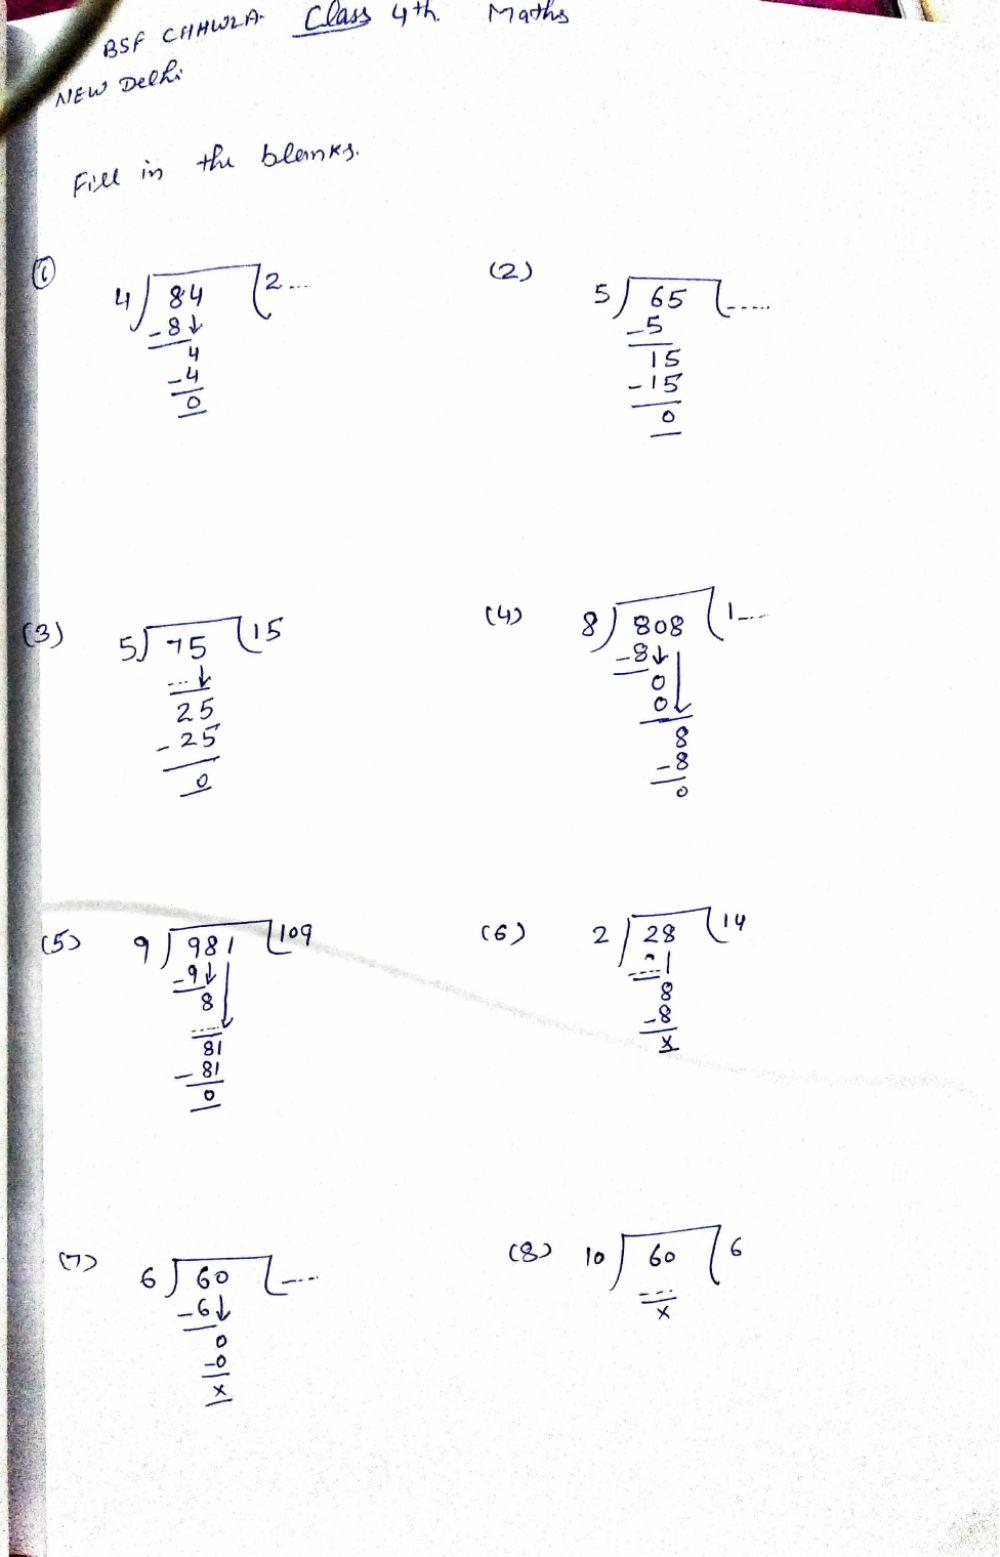 BSF CHHWLA. Class 4th. Maths
NEW Delhi
Fill in the blanks.
(1) 4) 84 (2...
-8↓
4
-4
0
(2) 5) 65 (.....
-5
15
-15
0
(3) 5) 75 (15
...↓
25
-25
0
(4) 8) 808 (1....
-8↓
0
0↓
8
-8
0
(5) 9) 981 (109
-9↓
8
....↓
81
-81
0
(6) 2) 28 (14
....
8
-8
x
(7) 6) 60 (.....
-6↓
0
-0
x
(8) 10) 60 (6
....
x